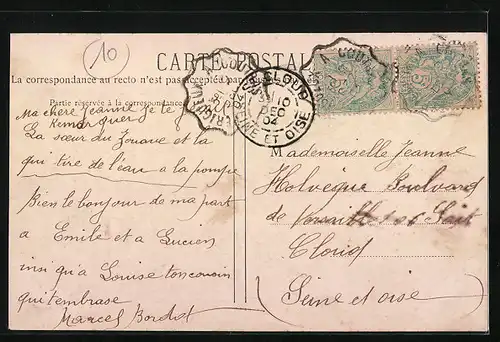 (10)
CARTE POSTALE
La correspondance au recto n'est pas acceptée par
Partie réservée à la correspondance
Ma chere Jeanne je te fe
Remarquer
La sœur du Zouave et la
qui tire de l'eau a la pompe
Bien le bonjour de ma part
a Emile et a Lucien
insi qu'a Louise ton cousin
qui t'embrase
Marcel Bordot
ST CLOUD
10
DEC
04
SEINE ET OISE
Mademoiselle Jeanne
Holvèque Boulvard
de
Cloud
Seine et oise